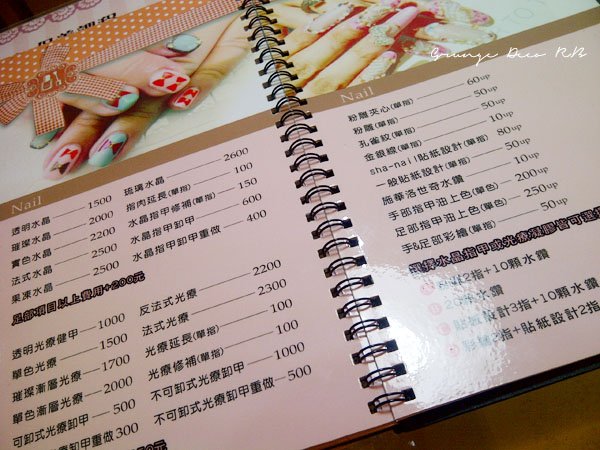 Grunge Deco R.B
Nail
透明水晶 1500
璀璨水晶 2000
實色水晶 2200
法式水晶 2500
果凍水晶 2500
琉璃水晶 2600
指肉延長(單指) 100
水晶指甲修補(單指) 150
水晶指甲卸甲 600
水晶指甲卸甲重做 400
足部項目以上費用+200元
透明光療健甲 1000
單色光療 1500
璀璨漸層光療 1700
單色漸層光療 2000
可卸式光療卸甲 500
可卸式光療卸甲重做 300
反法式光療 2200
法式光療 2300
光療延長(單指) 100
光療修補(單指) 100
不可卸式光療卸甲 1000
不可卸式光療卸甲重做 500
Nail
粉雕夾心(單指) 60up
粉雕(單指) 50up
孔雀紋(單指) 50up
金銀線(單指) 10up
sha-nail貼紙設計(單指) 80up
一般貼紙設計(單指) 50up
施華洛世奇水鑽 10up
手部指甲油上色(單色) 200up
足部指甲油上色(單色) 250up
手&足部彩繪(單指) 50up
選擇水晶指甲或光療凝膠皆可選擇
2指+10顆水鑽
20顆水鑽
貼紙設計3指+10顆水鑽
3指+貼紙設計2指